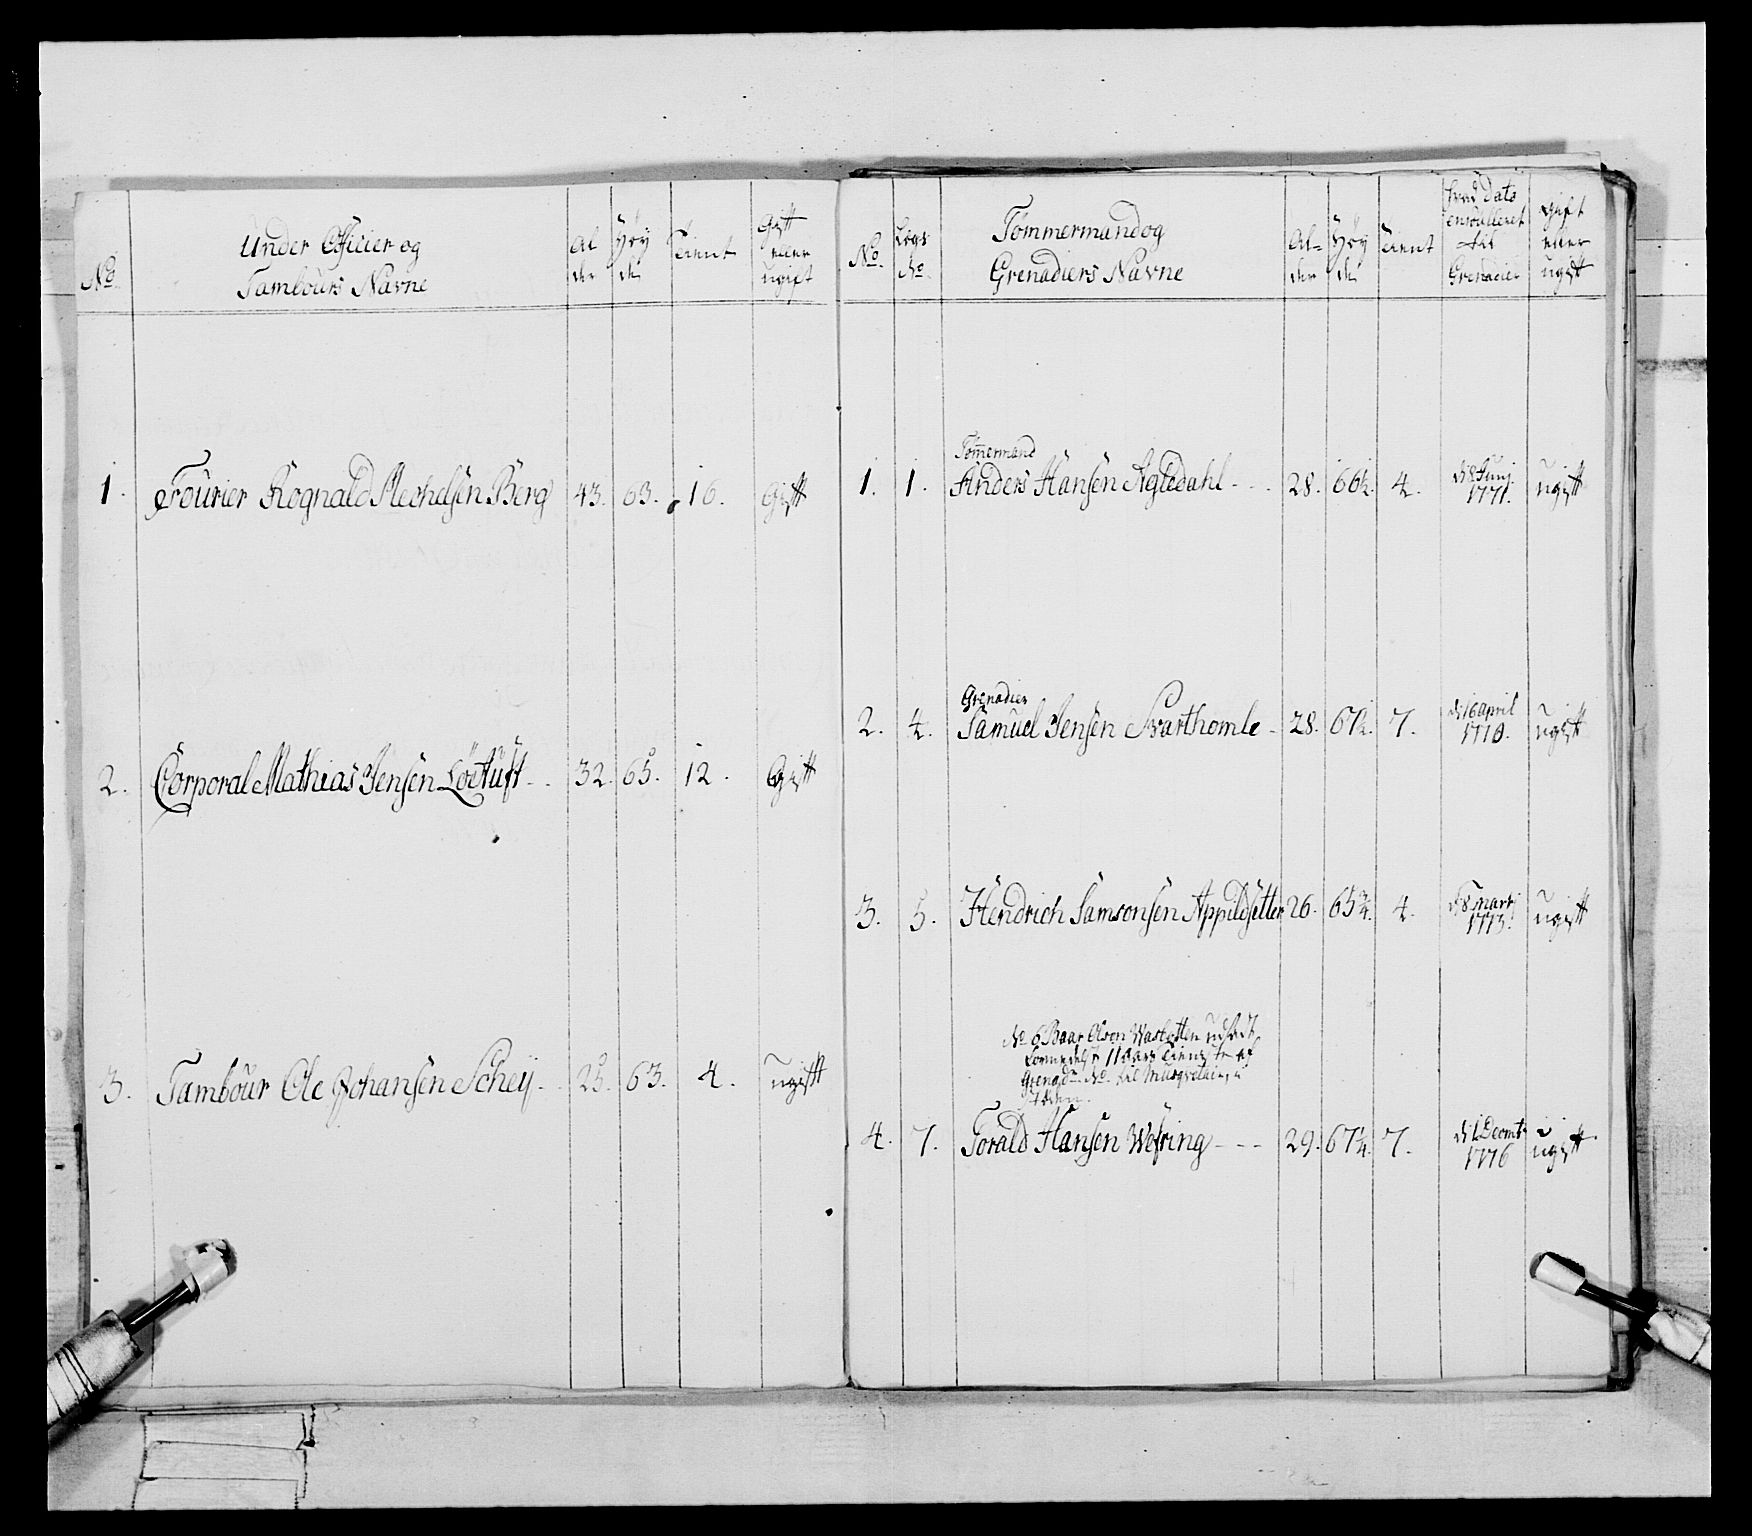 No
Under Officier og
Tambours Navne
Al
der
Høy
de
Tient
Gift
eller
ugift
1. Fourier Rognald Mechelsen Berg 43. 63. 16. Gift
2. Corporal Mathias Jensen Löetuft - - 32. 65. 12. Gift
3. Tambour Ole Johansen Scheij - 25. 63. 4. ugift
No.
Lægs
No.
Tømmermand og
Grenadiers Navne
Al-
der
Høy
de
Tient
hvad Dato
enroulleret
til
Grenadier
gift
eller
ugift
Tømermand
1. 1. Anders Hansen Agledahl - - - 28. 66½. 4. d: 8 Junj 1771. ugift
Grenadier
2. 4. Samuel Jensen Svarthomle - 28. 67½. 7. d: 16 april 1770. ugift
3. 5. Hendrich Samsonsen Appildsetter 26. 65¾. 4. d: 8 martj 1773. ugift
No 6 Baar Olson udsadt
11 aars tieneste af
Grenad: No. til
4. 7. Torald Hansen Wefring - - - 29. 67¼. 7. d: 1 Decmb 1776 ugift